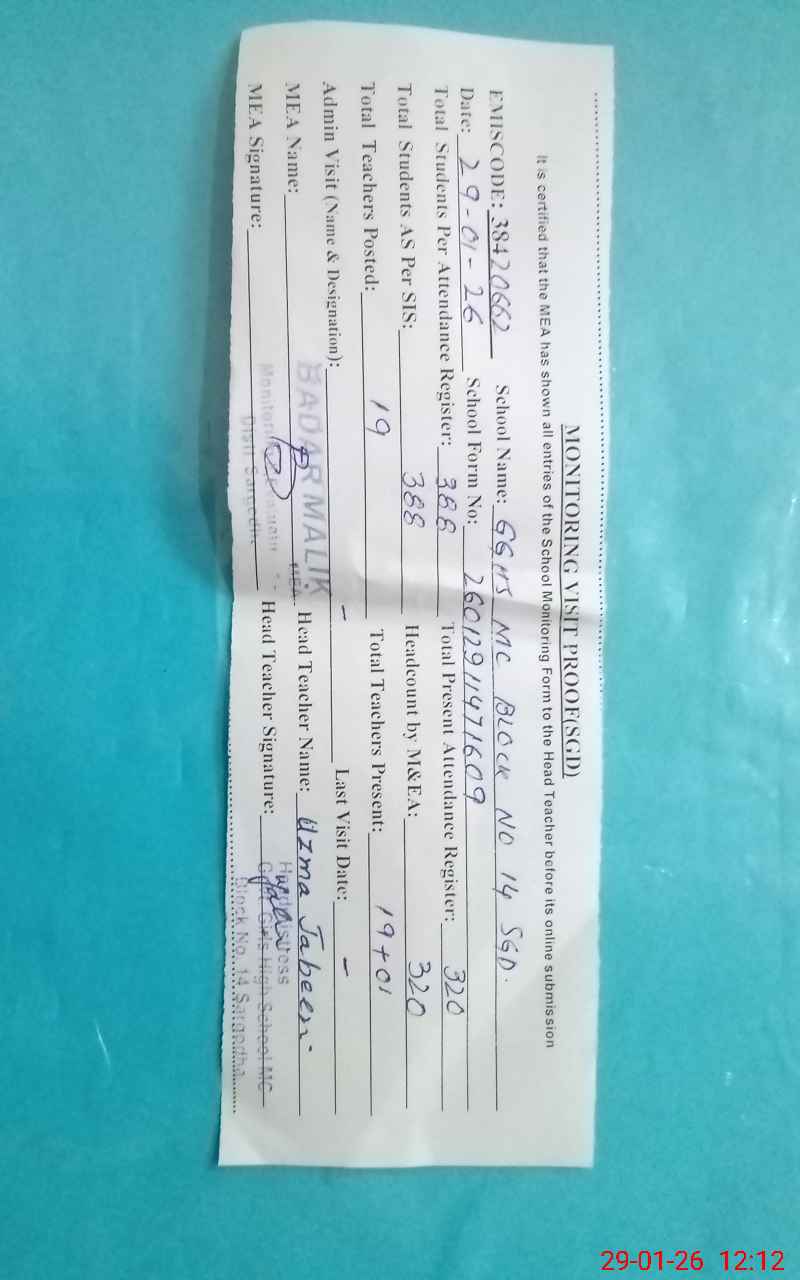 MONITORING VISIT PROOF(SGD)
It is certified that the MEA has shown all entries of the School Monitoring Form to the Head Teacher before its online submission
EMISCODE: 38420662 School Name: GGHS MC BLOCK NO 14 SGD.
Date: 29-01-26 School Form No: 2601291147 1609
Total Students Per Attendance Register: 388 Total Present Attendance Register: 320
Total Students AS Per SIS: 388 Headcount by M&EA: 320
Total Teachers Posted: 19 Total Teachers Present: 19+01
Admin Visit (Name & Designation): - Last Visit Date: -
MEA Name: BADAR MALIK MEA Head Teacher Name: Uzma Jabeen
MEA Signature: Head Teacher Signature:
Distt Sargodha
Headmistress
Govt Girls High School MC
Block No. 14 Sargodha
29-01-26 12:12